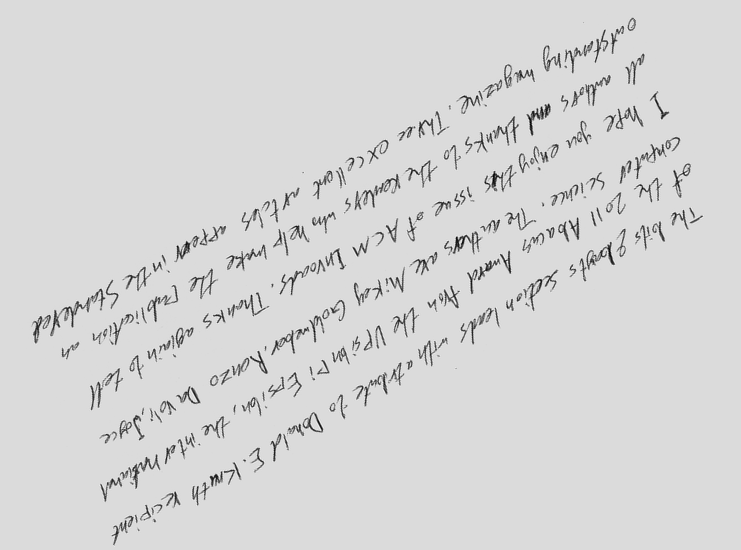 The bits & bayts section leads with a tribute to Donald E. Knuth recipient
of the 2011 Abacus Award from the Upsilon Pi Epsilon, the international
computer science. The authors are Mikey Goldweber, Renzo Davoli, Joyce
I hope you enjoy this issue of ACM Inroads. Thanks again to tell
all authors and thanks to the readers who help make the publication an
outstanding magazine. Three excellent articles appear in the Standered